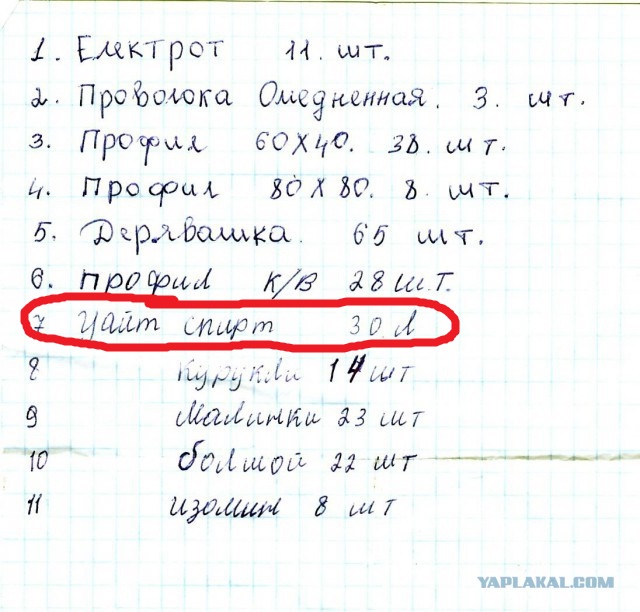 1. Електрот 11. шт.
2. Проволока Омедненная. 3. шт.
3. Профил 60х40. 38. шт.
4. Профил 80х80. 8. шт.
5. Дерявашка. 65 шт.
6. Профил К/В 28 шт.
7 Уайт спирт 30. Л
8 Курукли 14 шт
9 Малинки 23 шт
10 болшой 22 шт
11 изомин 8 шт
YAPLAKAL.COM